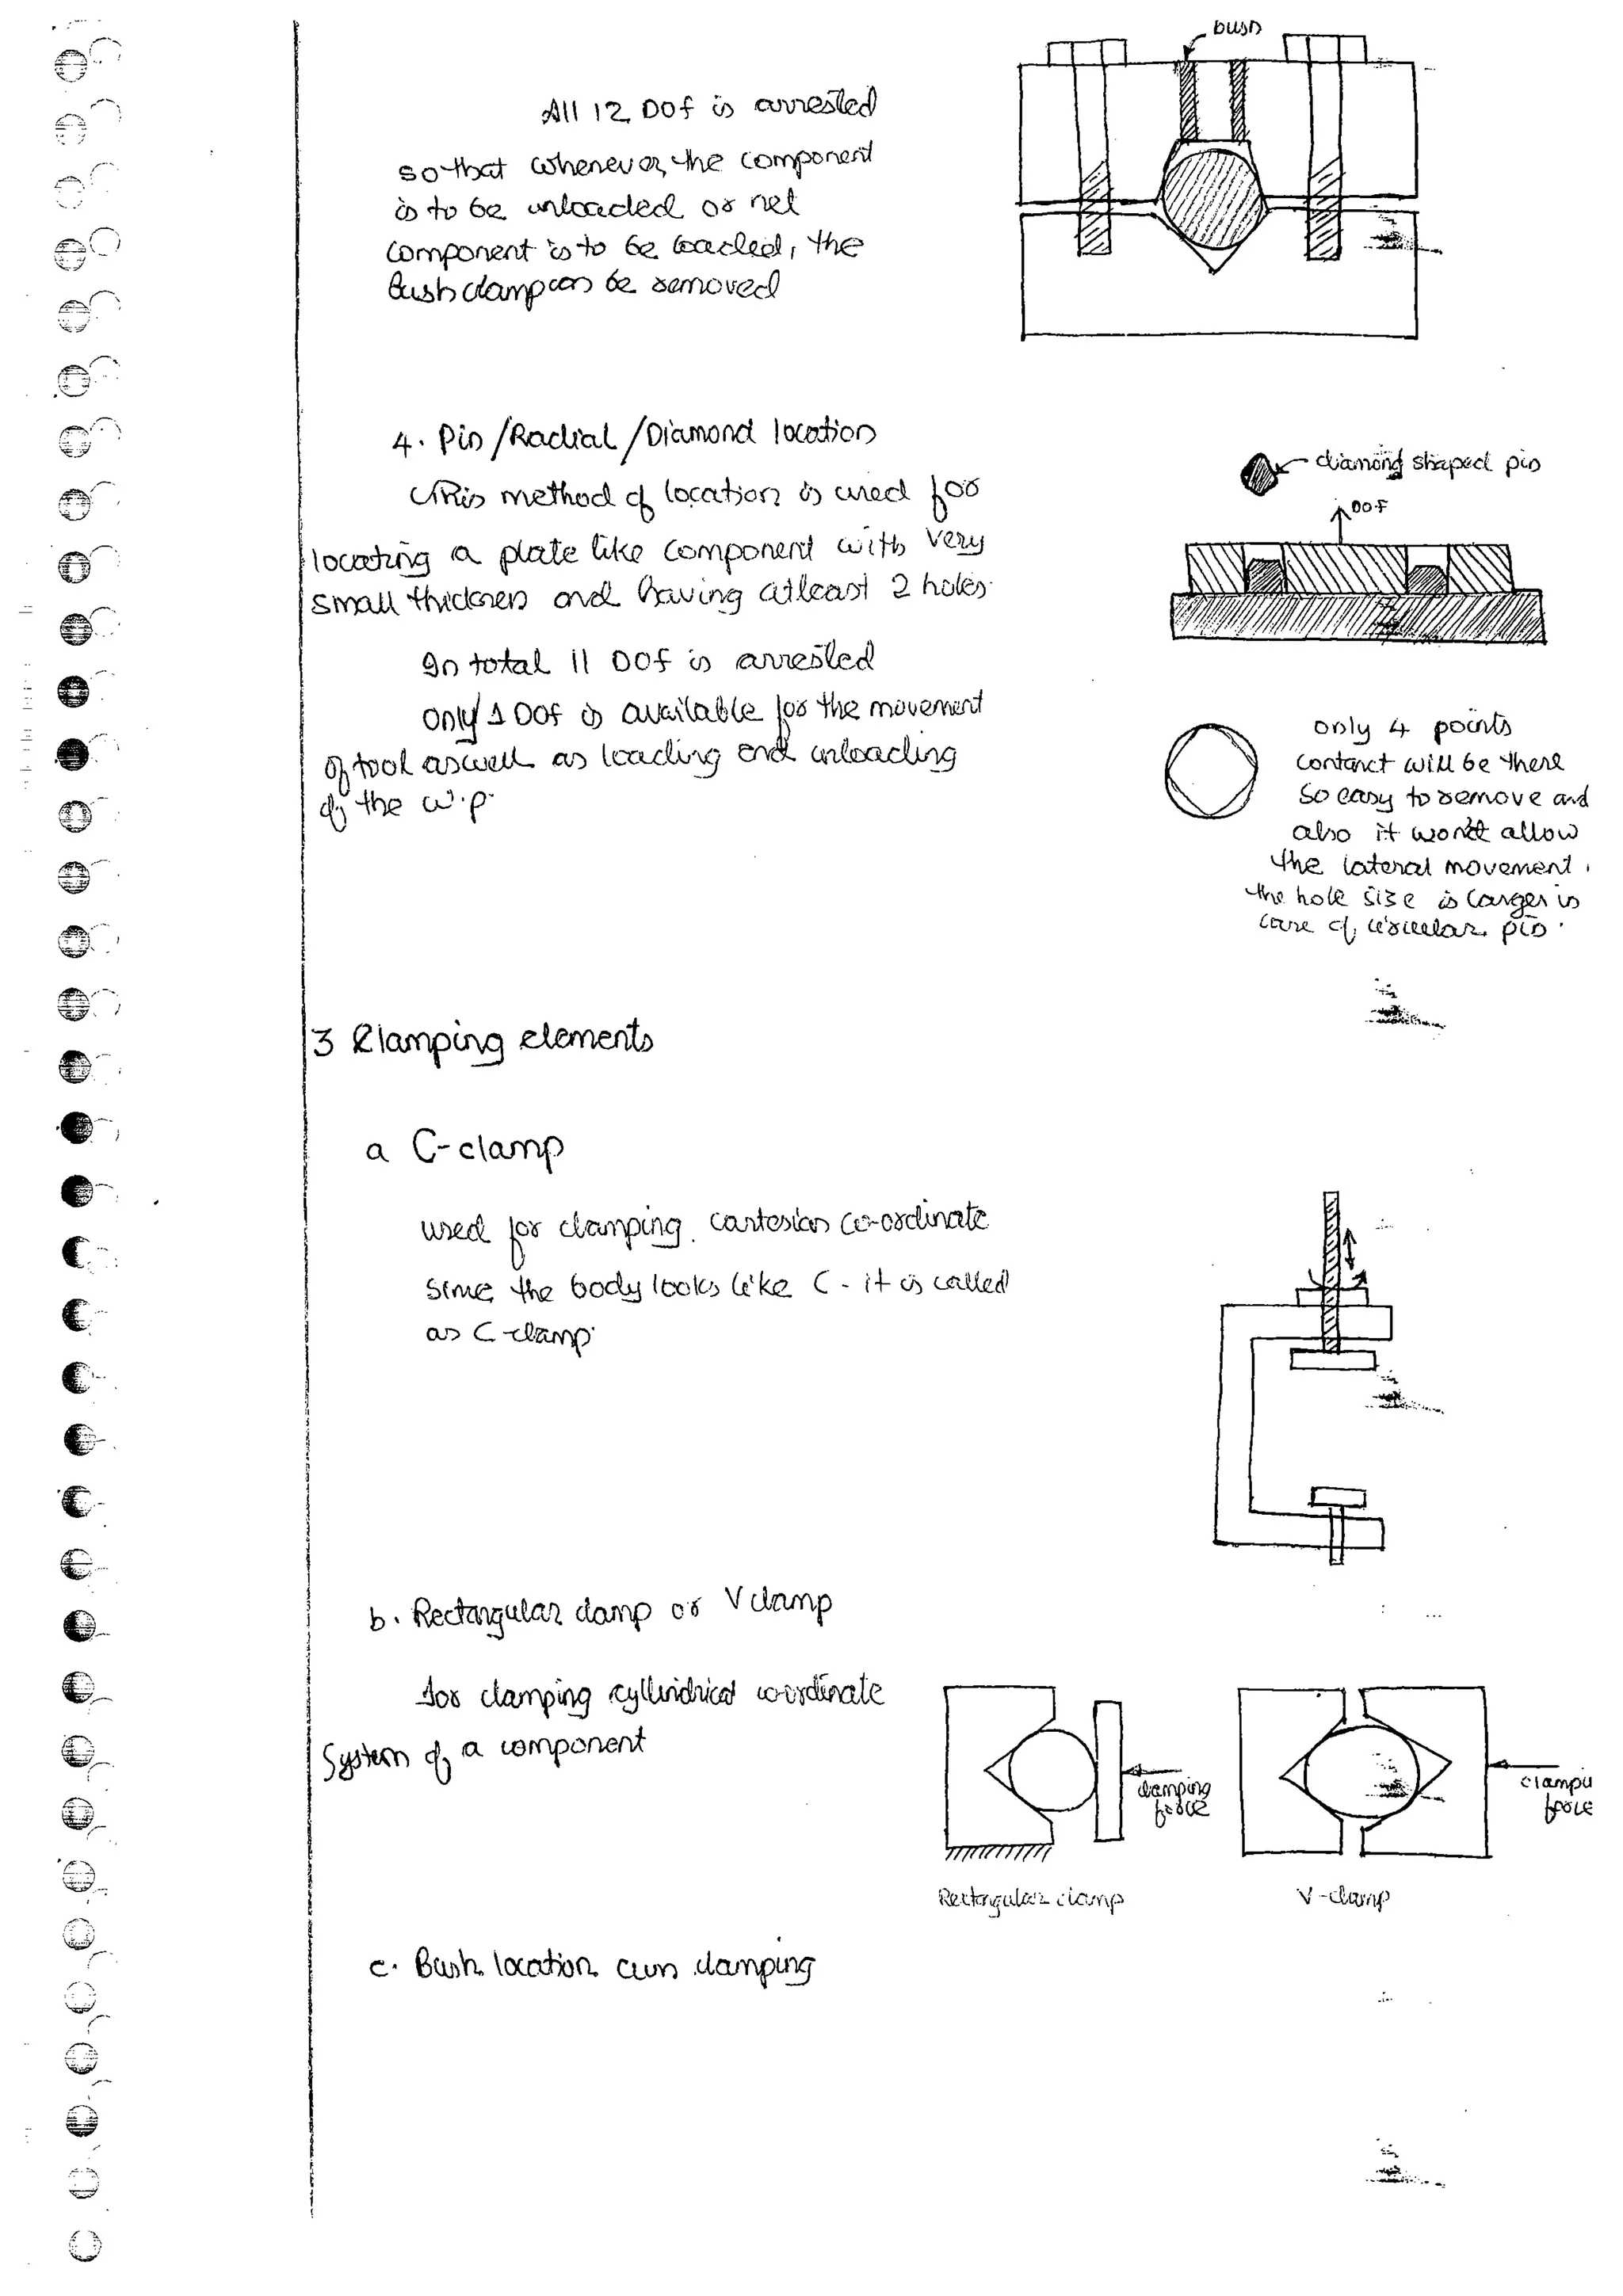 bush
All 12 DOF is arrested
so that whenever the component
is to be unloaded or net
component is to be loaded, the
Bush clamp can be removed
4. Pin/Radial/Diamond location
This method of location is used for
locating a plate like component with very
small thickness and having atleast 2 holes.
In total 11 DOF is arrested
only 1 DOF is available for the movement
of tool aswell as loading and unloading
of the w.p.
diamond shaped pin
DOF
only 4 points
contact will be there
so easy to remove and
also it won't allow
the lateral movement.
the hole size is larger in
case of circular pin.
3 Clamping elements
a C-clamp
used for clamping cartesian co-ordinate
Since the body looks like C - it is called
as C-clamp.
b. Rectangular clamp or V clamp
for clamping cyllindrical co-ordinate
System of a component
clamping
force
clampi
force
Rectangular clamp
V-clamp
c. Bush location cum clamping